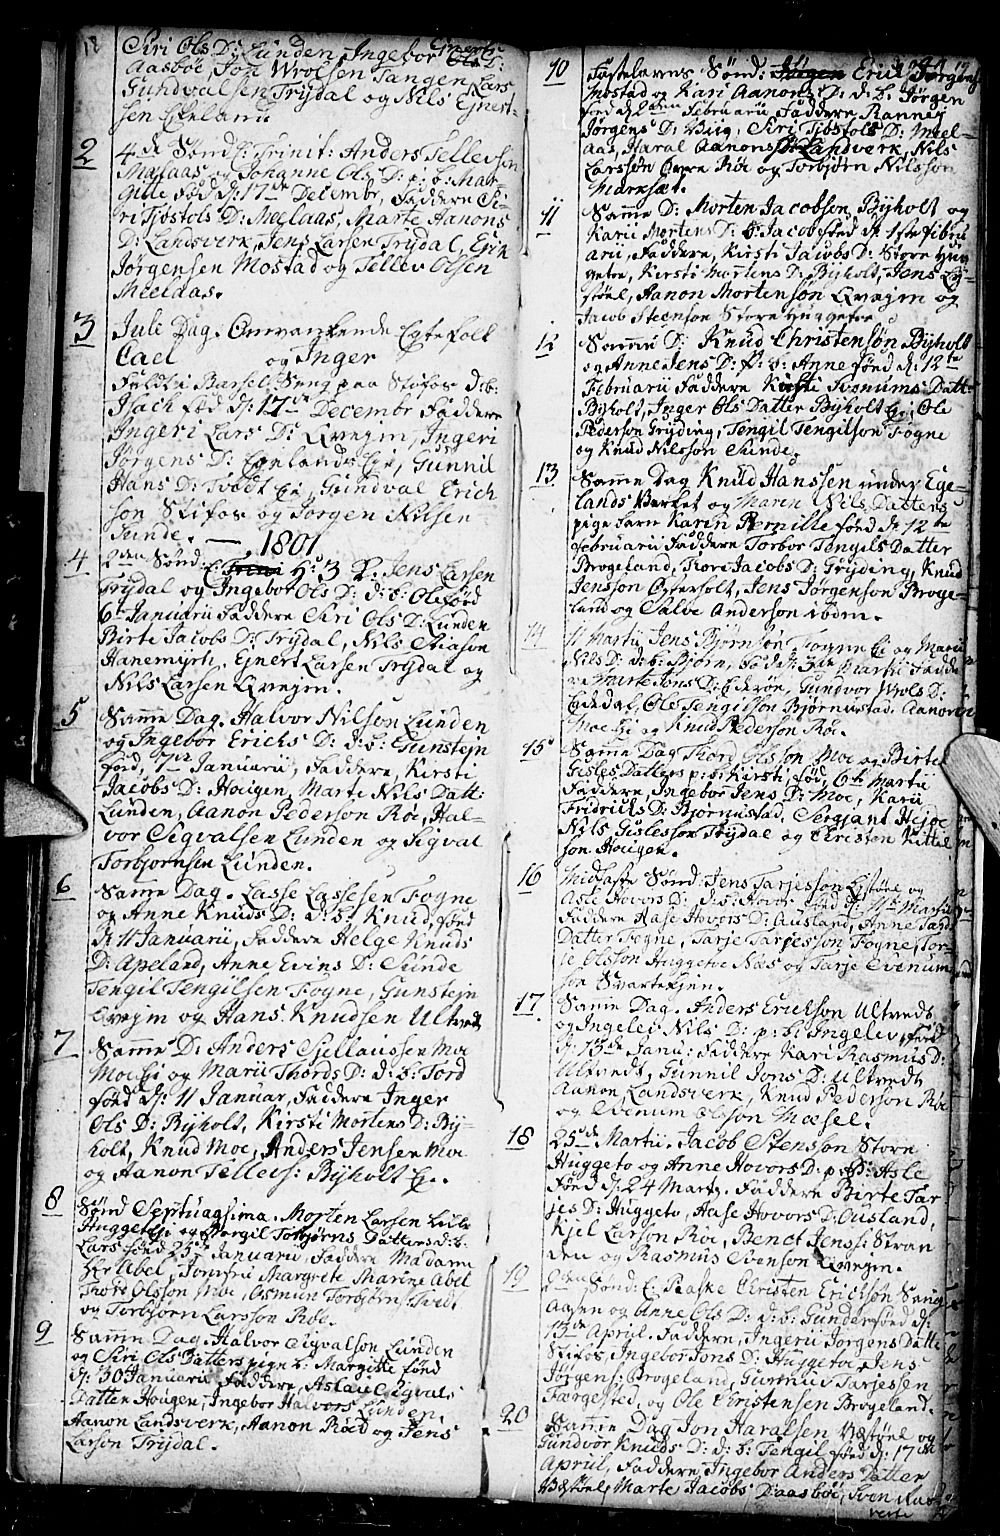 18
Siri Ols D: Lunden, Ingebor Ejnerts D:
Aasböe, Jon Wrolsen Tangen, Lars
Gundvalsen Trydal og Nils Ejnert-
sen Egeland
2
4de Sönd: Trinit: Anders Tellevsen
Mælaas og Johanne Ols D: p: b: Mar-
gite fød d: 17de Decembr, Faddere Si-
ri Tjostols D: Meelaas, Marte Aanons
D: Landsverk, Jens Larsen Trydal, Erik
Jørgensen Mostad og Tellev Olsen
Meelaas.
3
Jule Dag. Omvankende Egtefolk
Cael og Inger
Barsel Seng paa Stifos d: b:
Isach fød d: 17de Decembr Faddere
Ingeri Lars D: Qvejm, Ingeri
Jörgens D: Egelands Eje, Gunnil
Hans D: Tvedt Eje, Gundval Erich
son Stifos og Jorgen Nilsen
Sunde. — 1801
4
2den Sönd: E: H: 3 K: Jens Larsen
Trydal og Ingebor Ols D: d: b: Ole förd
6te Januarii Faddere Siri Ols D: Lunden
Birte Jacobs D: Trydal, Nils Eliasøn
Hanemyrh, Ejnert Larsen Trydal og
Nils Larsen Qvejm.
5
Samme Dag. Halvor Nilson Lunden
og Ingebor Erichs D: d: b: Gunstejn
förd, 7de Januarii, Faddere, Kirsti
Jacobs D: Hougen, Marte Nils Datt:
Lunden, Aanon Pederson Röe, Hal-
vor Sigvalsen Lunden og Sigval
Torbjørnsen Lunden.
6
Samme Dag. Lasse Lassesen Fogne
og Anne Knuds D: d: b: Knud, förd
d: 11 Januarii, Faddere Helge Knuds
D: Apeland, Anne Evins D: Sunde
Tengil Tengilsen Fogne, Gunstejn
Qvejm og Hans Knudsen Ultvedt
7
Samme D: Anders Sjellaussen Moe
Moe Eje og Marii Thords D: d: b: Tord
förd d: 11 Januar, Faddere Inger
Ols D: Byholt, Kirsti Mortens D: By-
holt, Knud Moe, Anders Jensen Moe
og Aanon Tellevs: Byholt Eje.
8
Sönd Septuagsima. Morten Larsen Lille
Huggeto Eje og Torbjørns Datters d: b:
Lars förd 25de Januarii, Faddere Madame
Abel, Jomfrue Margrete Marine Abel
Thore Olsson Stie, Osmun Torbjørns: Tvedt
og Torbjørn Larsson Röe.
9
Samme Dag. Halvor Sigvalson Lunden
og Siri Ols Datters pige b: Margitte förd
d: 30 Januarii Faddere, Aslau Sigvals
Datter Hougen, Ingebor Halvors Lunden,
Aanon Landsverk, Aanon Röed og Jens
Larson Trydal.
10
Fastelavns Sönd: Erik Jørgens
Mostad og Kari Aanons D: d: b: Jörgen
förd d: 2den Februarii Faddere Ranney
Jörgens D: Buig, Siri Tjostols D: Meel-
aas, Haral Aanonsson Landverk, Nils
Larsson Övre Röe og Torbjørn Nilsson
Marksæt.
11
Samme D: Morten Jacobsen Byholt og
Karii Mortens D: b: Jacob fød d: 1ste febru
arii, Faddere, Kirsti Jacobs D: Store Hug
getoe, Kirsti Mortens D: Byholt, Jens Ey-
stöel, Aanon Mortensøn Qvejm og
Jacob Steensøn Store Huggetoe
12
Samme D: Knud Christensøn Byholt
og Anne Jens D: P: b: Anne förd d: 12te
Februarii Faddere Kirsti Evenums Datt:
Byholt, Inger Ols Datter Byholt Eje, Ole
Pederson Gryding, Tengil Tengilson Fogne
og Knud Nilsson Sunde.
13
Samme Dag Knud Hanssen under Ege-
lands Værket og Maren Nils Datters
pige barn Karin Pernille förd d: 12te
februarii Faddere Torbor Tengils Datter
Brogeland, Tore Jacobs D: Gryding, Knud
Jensson Österholt, Jens Jørgenson Broge-
land og Salve Anderson ibdm.
14
11 Martii Jens Bjørnsøn Fogne Eje og Marii
Nils D: d: b: Bjørn, Fød d: 3die Martii Fadde
re Marte Jons D: Ederöe, Gundvor Wrols D:
Egedal, Ole Tengilson Björnustad, Aanon
Moe Eje og Knud Pederson Röe.
15
Samme Dag Thord Olsson Moe og Birte
Gisles Datters p: b: Kirsti, fød, 6te Martii
Faddere, Ingebor Jens D: Moe, Karii
Fridrichs D: Bjørnustad, Sergiant Hejöe
Nils Gislesson Trydal og Christen Kittel
son Hougen.
16
Midfaste Sønd: Jens Tarjesson Eystöel og
Asie Hovors D: d: b: Hovor fød d: 11te Martii
Faddere Aase Hovors D: Ausland, Anne Tarjes
Datter Fogne, Tarje Tarjesson Fogne, Tor-
je Olsson Huggetoe Næs og Tarje Evenum
son Svartekjen.
17
Samme Dag. Anders Erickson Ultvedt
og Ingelej Nils D: p: b: Ingelev, förd
d: 13de Janu: Faddere Kari Rasmus D:
Ultvedt, Gunnil Jons D: Ultvedt
Aanon Landsverk, Knud Pederson Röe
og Evenum Olsson Mæsel.
18
25de Martii. Jacob Stensson Store
Huggeto og Anne Hovors D: p: b: Asle
Förd d: 24 Marts. Faddere Birte Tar
jes D: Huggeto, Aase Hovors D: Ausland,
Kjel Larson Röe, Benct Jenss: Stran
den og Rasmus Evenson Qvejm.
19
2den Sönd: E: Paaske Christen Erickson Saug
Aasen og Anne Ols D: d: b: Gunder förd d:
13de April. Faddere, Ingeri Jorgens Datte
Stifos, Ingebor Jons D: Huggetoe, Jens
Jörgens: Brogeland, Gunnu Tarjessen
Færgested, og Ole Christensen Brogeland.
20
Samme Dag Jon Haralsen Væstöel og
Gundvor Knuds D: d: b: Tengil förd d: 17de
April, Faddere, Ingebor Anders Datter
Væstöel, Marte Jacobs D: aasböe, Sven Aas